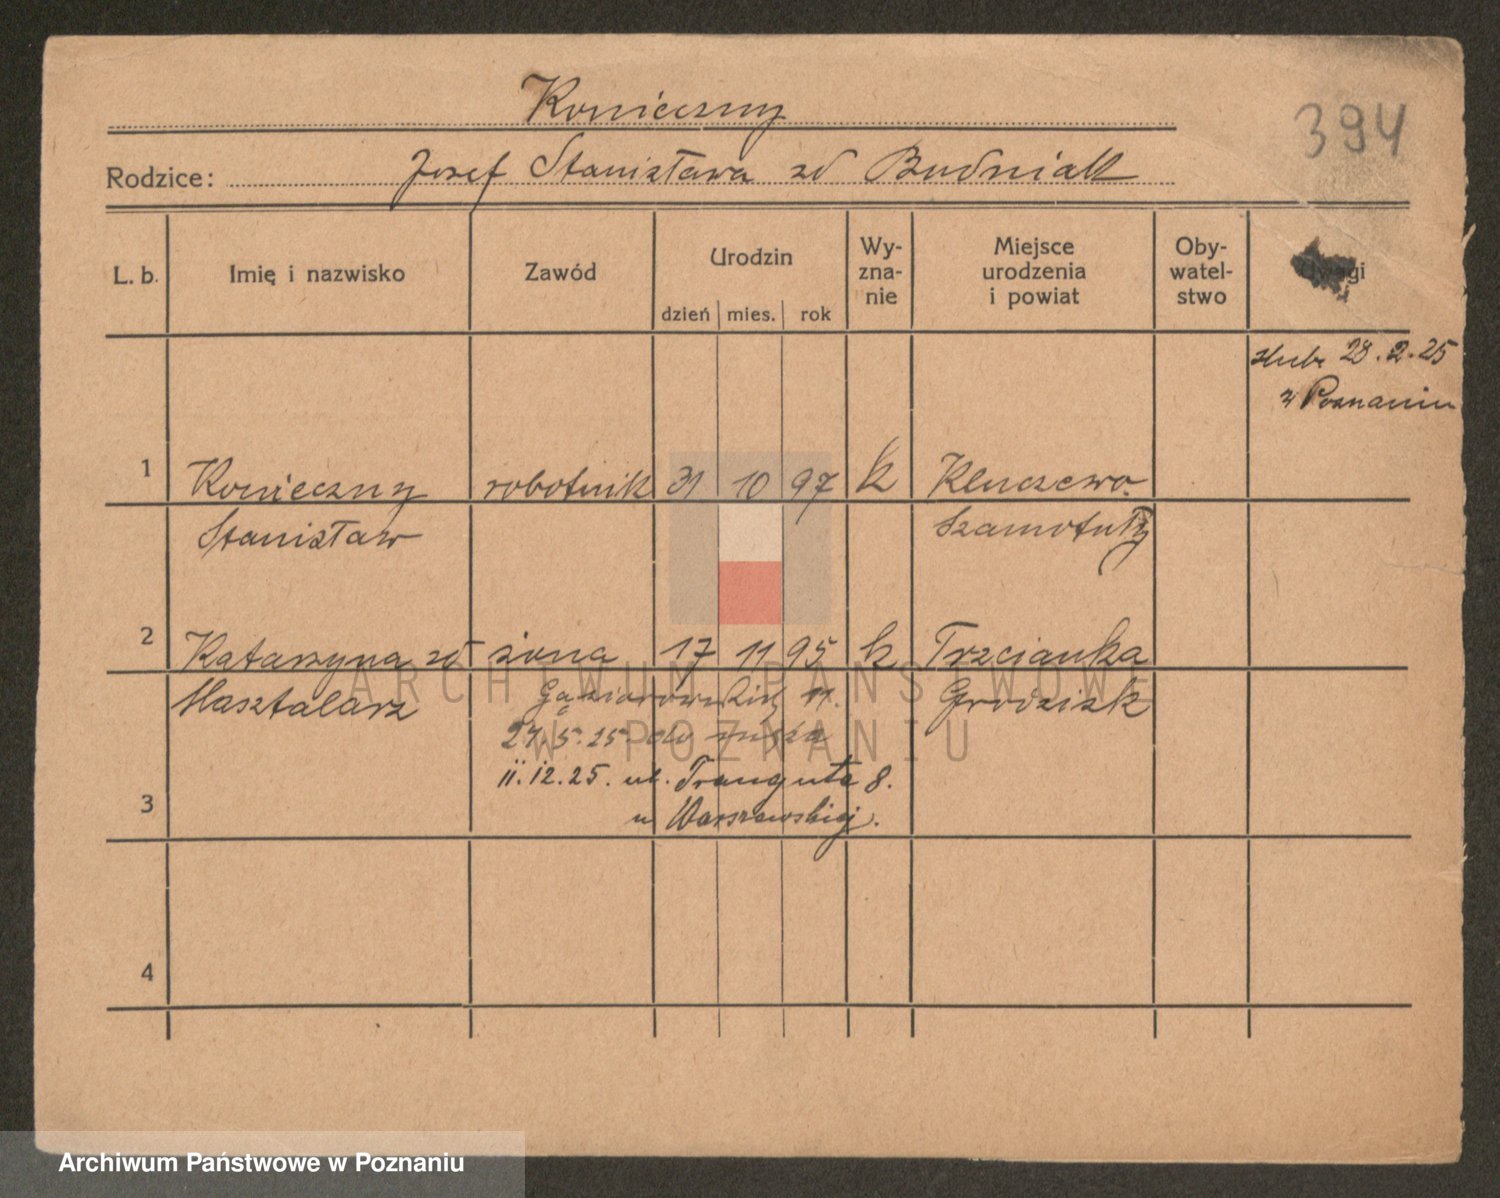 Konieczny
394
Rodzice: Josef Stanisława zd Budniak
L. b. Imię i nazwisko Zawód Urodzin dzień mies. rok Wy-zna-nie Miejsce urodzenia i powiat Oby-watel-stwo Uwagi
ślub 28.2.25
w Poznaniu
1 Konieczny robotnik 31 10 97 k Kluczewo
Stanisław Szamotuły
2 Katarzyna zd żona 17 11 95 k Trzcianka
Masztalarz Gąsiorowskich 11. Grodzisk
27.5.25. do męża
11.12.25. ul. Trauguta 8.
u Warszawskiej.
3
4
ARCHIWUM PAŃSTWOWE
W POZNANIU
Archiwum Państwowe w Poznaniu